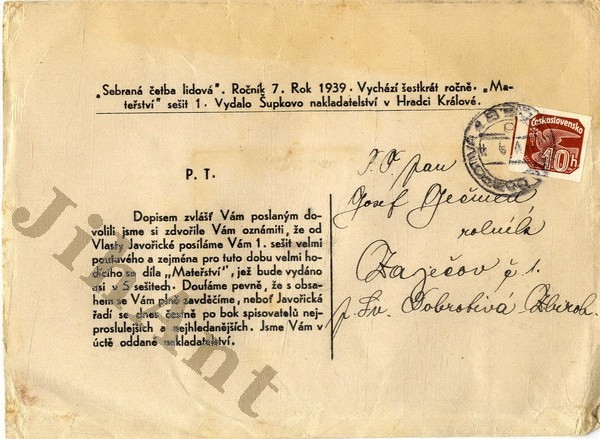 „Sebraná četba lidová". Ročník 7. Rok 1939. Vychází šestkrát ročně. „Ma-
teřství" sešit 1. Vydalo Šupkovo nakladatelství v Hradci Králové.
Československo
10h
P. T.
Dopisem zvlášť Vám poslaným do-
volili jsme si zdvořile Vám oznámiti, že od
Vlasty Javořické posíláme Vám 1. sešit velmi
poutavého a zejména pro tuto dobu velmi ho-
dícího se díla „Mateřství", jež bude vydáno
asi v 5 sešitech. Doufáme pevně, že s obsa-
hem se Vám plně zavděčíme, neboť Javořická
řadí se dnes čestně po bok spisovatelů nej-
proslulejších a nejhledanějších. Jsme Vám v
úctě oddané nakladatelství.
T. P. pan
Josef Ječmen
rolník
Zaječov č 1.
p. Sv. Dobrotivá Zbiroh.
JihAnt